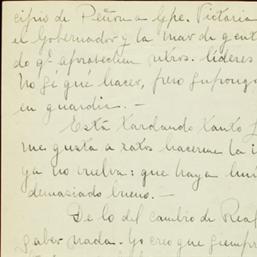 cipio de Peñon a Gpe. Victoria
el Gobernador y la mar de gent
do qe. aprovechen ntros. líderes
no sé qué hacer, pero supongo
en guardia. —
Está tardando tanto
me gusta a ratos hacerme la i
ya no vuelva: que haya
demasiado bueno. —
De lo del cambio de Real
saber nada. Yo creo que siempre